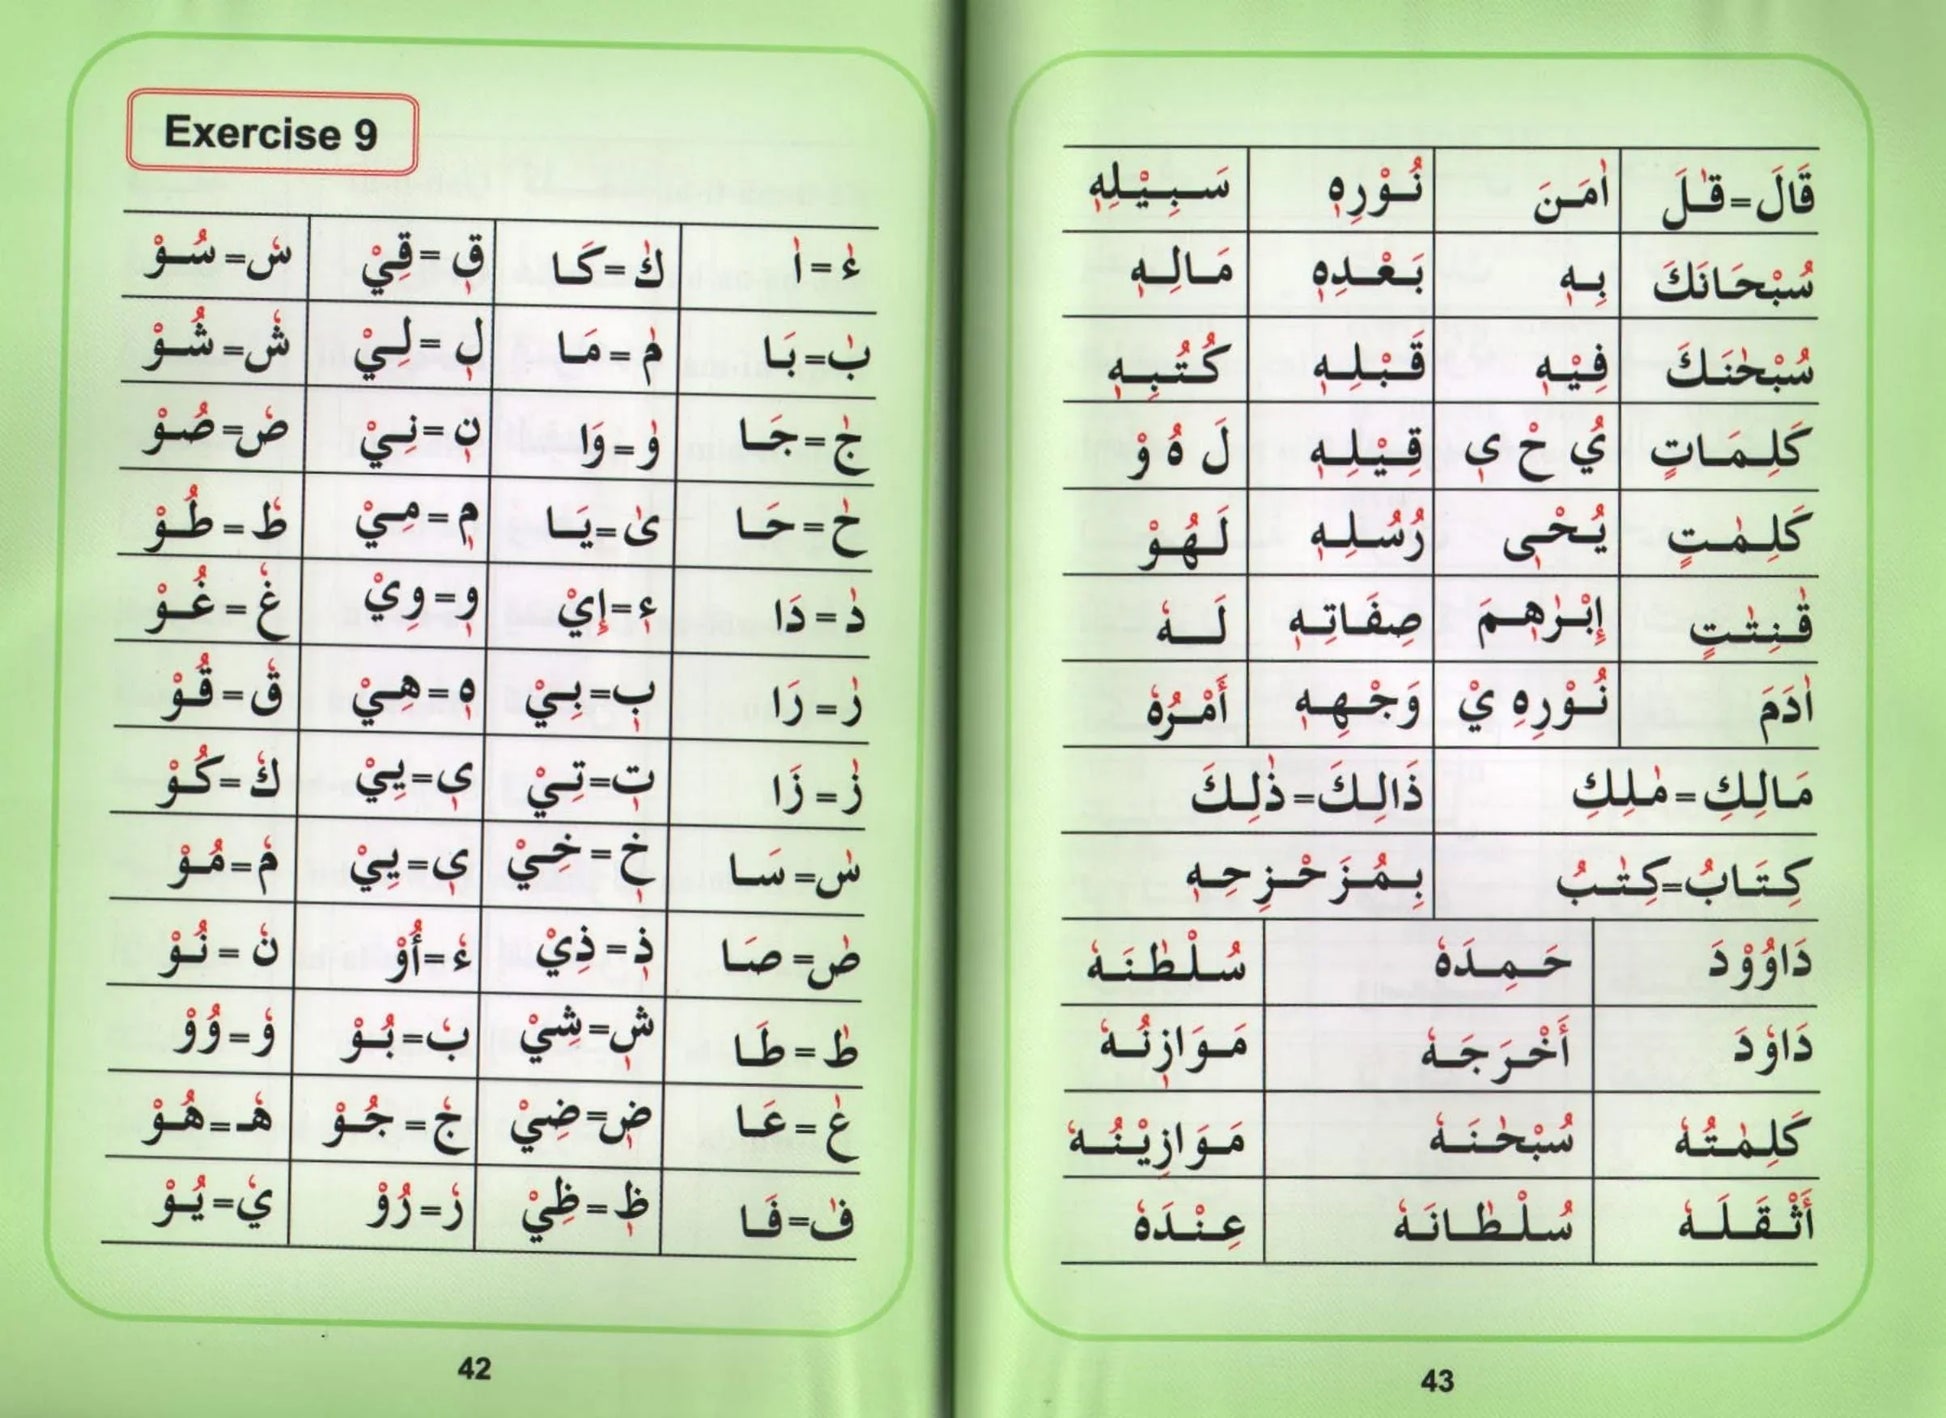 Exercise 9
ءٰ=اٰ كٰ=كَا قٖ=قِيْ سٗ=سُوْ
بٰ=بَا مٰ=مَا لٖ=لِيْ شٗ=شُوْ
جٰ=جَا وٰ=وَا نٖ=نِيْ صٗ=صُوْ
حٰ=حَا ىٰ=يَا مٖ=مِيْ طٗ=طُوْ
دٰ=دَا ءٖ=إِيْ وٖ=وِيْ غٗ=غُوْ
رٰ=رَا بٖ=بِيْ هٖ=هِيْ قٗ=قُوْ
زٰ=زَا تٖ=تِيْ ىٖ=يِيْ كٗ=كُوْ
سٰ=سَا خٖ=خِيْ ىٖ=يِيْ مٗ=مُوْ
صٰ=صَا ذٖ=ذِيْ ءٗ=أُوْ نٗ=نُوْ
طٰ=طَا شٖ=شِيْ بٗ=بُوْ وٗ=وُوْ
عٰ=عَا ضٖ=ضِيْ جٗ=جُوْ هٗ=هُوْ
فٰ=فَا ظٖ=ظِيْ رٗ=رُوْ يٗ=يُوْ
42
قَالَ=قٰلَ اٰمَنَ نُوْرِهٖ سَبِيْلِهٖ
سُبْحَانَكَ بِهٖ بَعْدِهٖ مَالِهٖ
سُبْحٰنَكَ فِيْهٖ قَبْلِهٖ كُتُبِهٖ
كَلِمَاتٍ يُ حْ يٖ قِيْلِهٖ لَ هُ وْ
كَلِمٰتٍ يُحْيٖ رُسُلِهٖ لَهُوْ
قٰنِتٰتٍ إِبْرٰهٖمَ صِفَاتِهٖ لَهٗ
اٰدَمَ نُوْرِهِ يْ وَجْهِهٖ أَمْرُهٗ
مَالِكِ=مٰلِكِ ذَالِكَ=ذٰلِكَ
كِتَابُ=كِتٰبُ بِمُزَحْزِحِهٖ
دَاوُوْدَ حَمِدَهٗ سُلْطٰنَهٗ
دَاوٗدَ أَخْرَجَهٗ مَوَازِنُهٗ
كَلِمٰتُهٗ سُبْحٰنَهٗ مَوَازِيْنُهٗ
أَثْقَلَهٗ سُلْطَانَهٗ عِنْدَهٗ
43